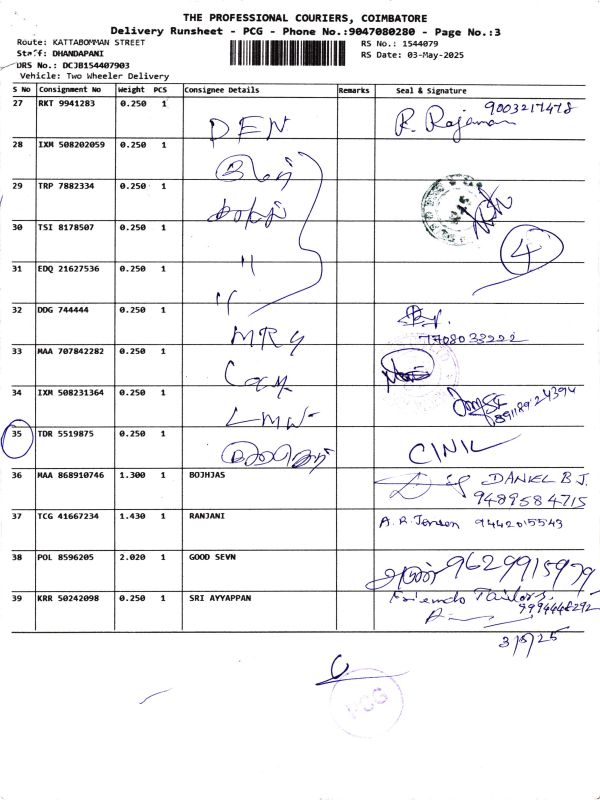 THE PROFESSIONAL COURIERS, COIMBATORE
Delivery Runsheet - PCG - Phone No.:9047080280 - Page No.:3
Route: KATTABOMMAN STREET
RS No.: 1544079
Staff: DHANDAPANI
RS Date: 03-May-2025
DRS No.: DCJB154407903
Vehicle: Two Wheeler Delivery
S No Consignment No Weight PCS Consignee Details Remarks Seal & Signature
27 RKT 9941283 0.250 1 DEN R. Rajaman 9003217478
28 IXM 508202059 0.250 1
29 TRP 7882334 0.250 1
30 TSI 8178507 0.250 1 " 4
31 EDQ 21627536 0.250 1 "
32 DDG 744444 0.250 1 MRY 7708033222
33 MAA 707842282 0.250 1
34 IXM 508231364 0.250 1 LMW
35 TDR 5519875 0.250 1 CINIL
36 MAA 868910746 1.300 1 BOJHJAS DANIEL B J.
9489584715
37 TCG 41667234 1.430 1 RANJANI A. R. Jenson 9442015543
38 POL 8596205 2.020 1 GOOD SEVN 9629915979
39 KRR 50242098 0.250 1 SRI AYYAPPAN Friends Tailors,
9994448292
3/5/25
PCG